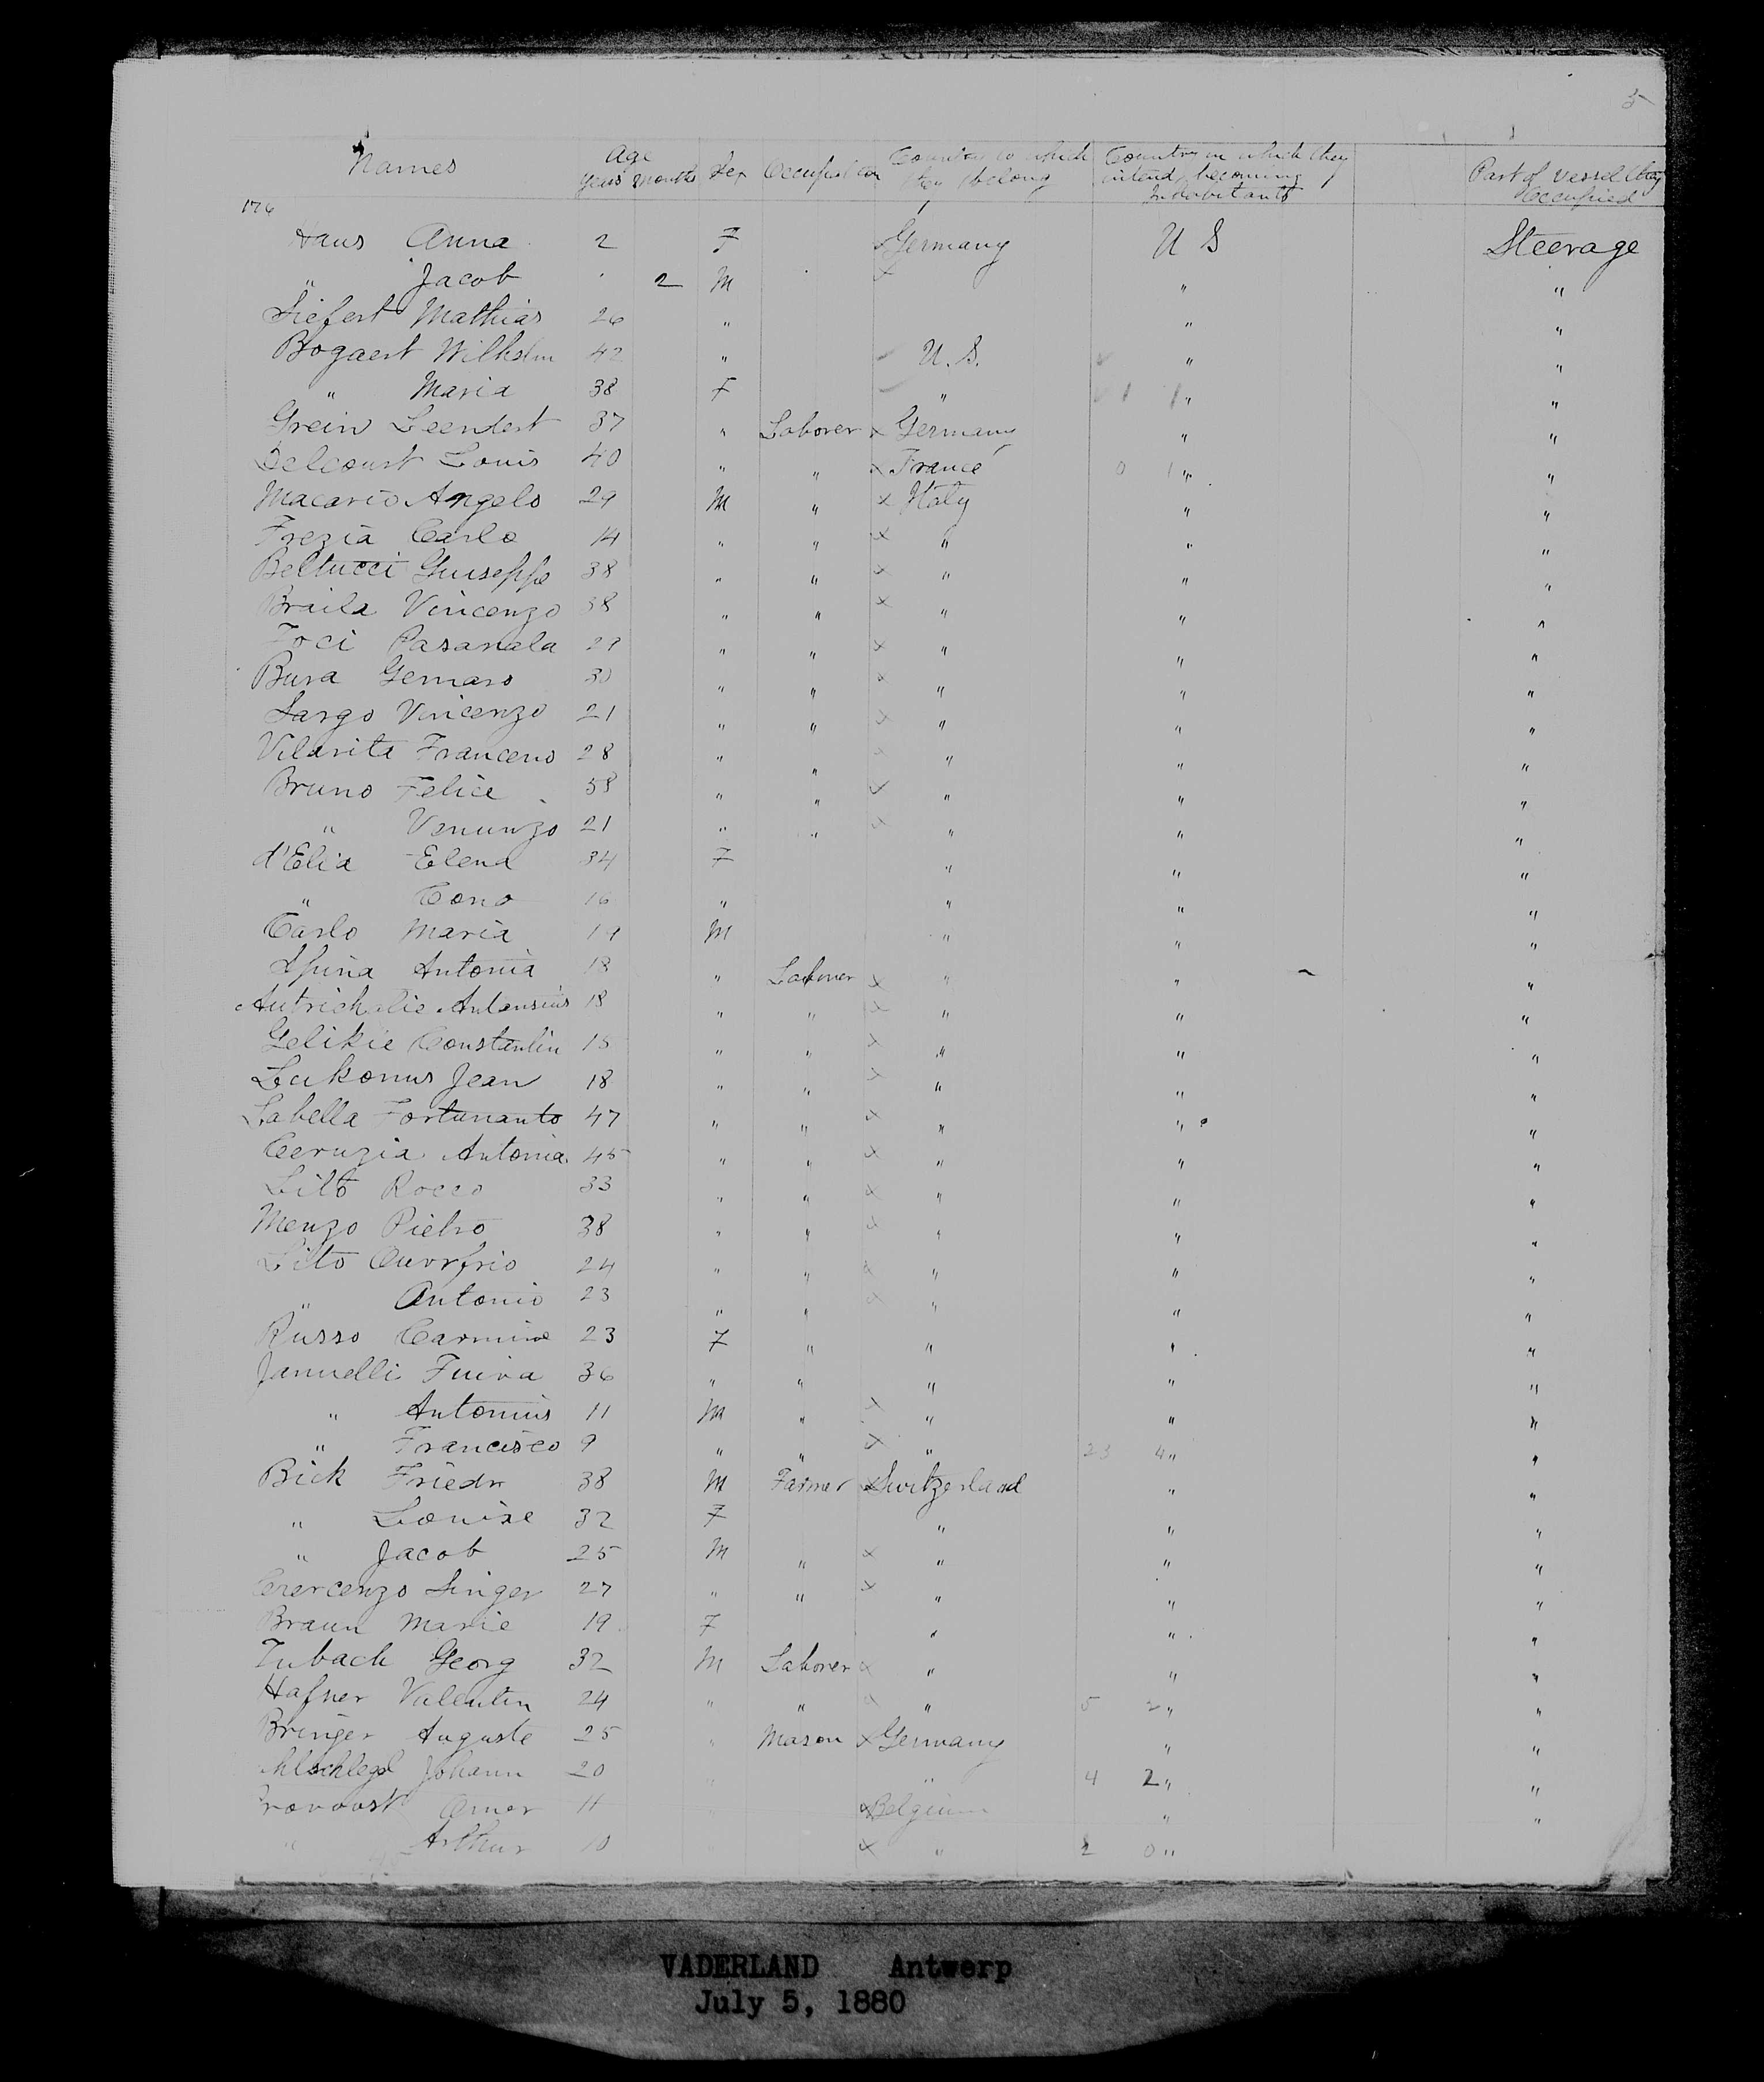 5
Names Age Years Months Sex Occupation Country to which they belong Country in which they intend becoming Inhabitants Part of Vessel they Occupied
176
Haus Anna 2 F Germany U S Steerage
" Jacob 2 M " "
Siefert Mathias 26 " " "
Bogaert Wilhelm 42 " U.S. " "
" Maria 38 F " 1 1 " "
Grein Leendert 37 " Laborer x Germany " "
Delcourt Louis 40 " " x France 0 1 " "
Macario Angelo 29 M " x Italy " "
Frezia Carlo 14 " " x " " "
Beltucci Guiseppe 38 " " x " " "
Braila Vincenzo 38 " " x " " "
Foci Pasanala 29 " " x " " "
Bura Gemaro 30 " " x " " "
Largo Vincenzo 21 " " x " " "
Vilarita Franceno 28 " " x " " "
Bruno Felice 58 " " x " " "
" Venunzo 21 " " x " " "
d'Elia Elena 34 F " " "
" Cono 16 " " " "
Carlo Maria 19 M " " "
Antonia 18 " Laborer x " " "
18 " " x " " "
Gelikie Constantin 18 " " x " " "
Lukonus Jean 18 " " x " " "
Labella Fortunanto 47 " " x " " "
Ceruzia Antonia 45 " " x " " "
Lito Rocco 33 " " x " " "
Menzo Pietro 38 " " x " " "
Lito 24 " " x " " "
" Antonio 23 " " x " " "
Russo Carmine 23 F " " " "
Jannelli 36 " " " " "
" Antonius 11 M " x " " "
" Francisco 9 " " x " 23 4 " "
Bick Friedr 38 M Farmer x Switzerland " "
" Louise 32 F " " "
" Jacob 25 M " x " " "
Singer 27 " " x " " "
Braun Marie 19 F " " "
Tubach Georg 32 M Laborer x " " "
Hafner Valentin 24 " " x " 5 2 " "
Bringer Auguste 25 " Mason x Germany " "
Johann 20 " " 4 2 " "
Omer 11 " x Belgium " "
" Arthur 10 " x " 2 0 "
VADERLAND Antwerp
July 5, 1880